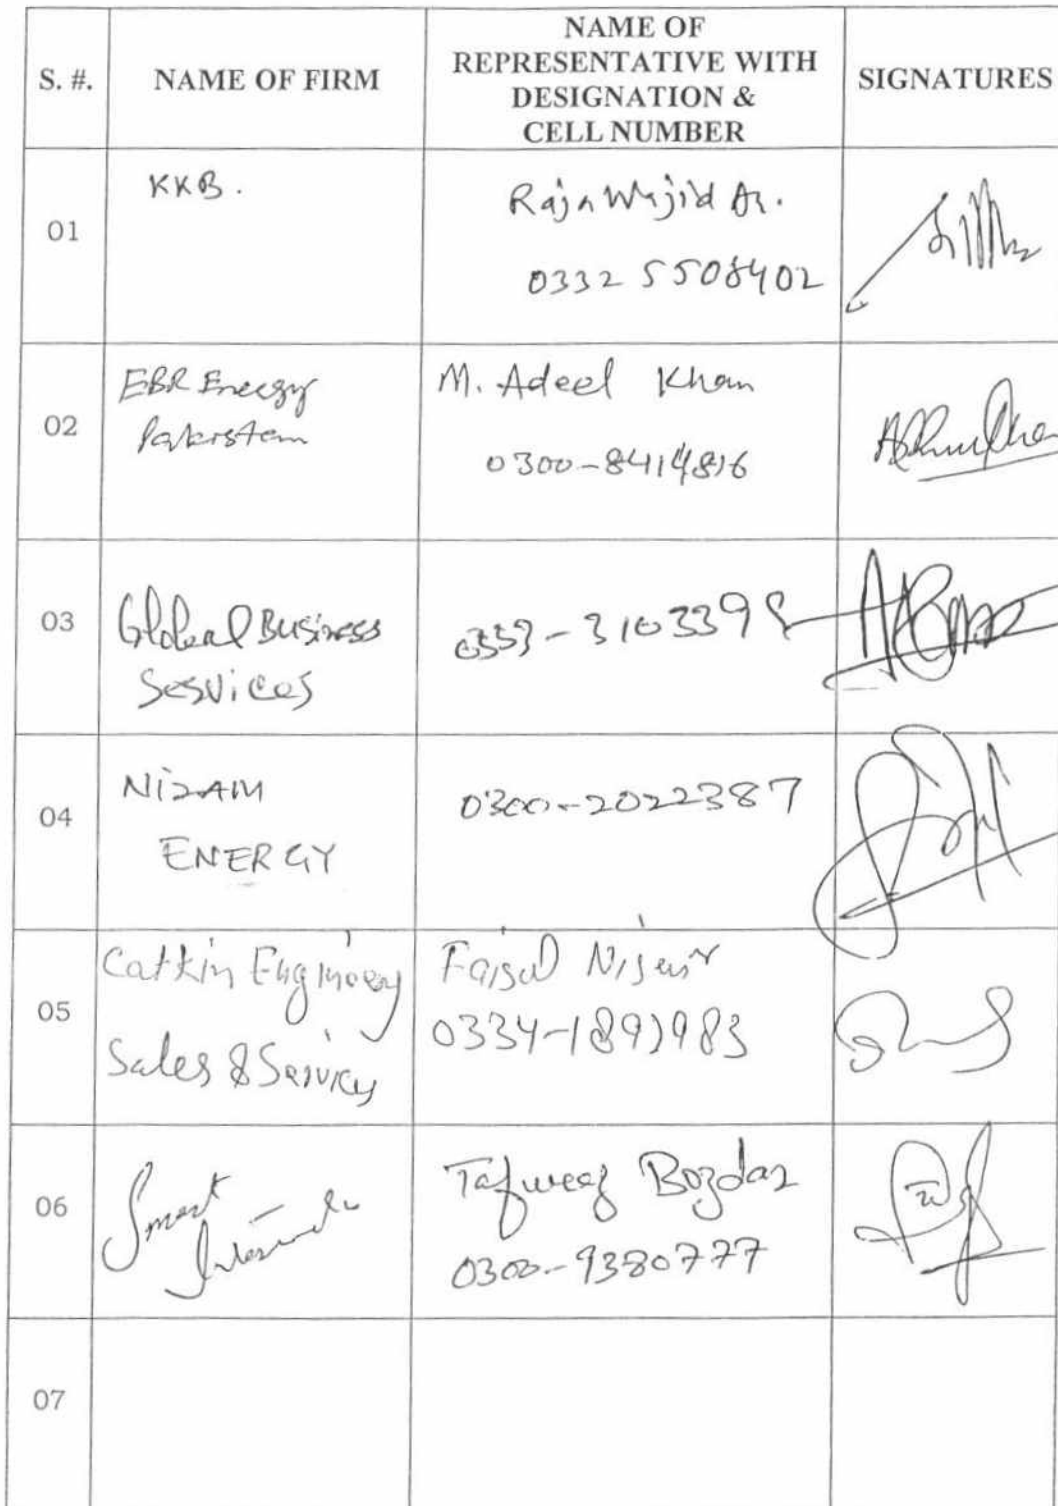 S. #.
NAME OF FIRM
NAME OF
REPRESENTATIVE WITH
DESIGNATION &
CELL NUMBER
SIGNATURES
01
KKB.
Raja Wajid
0332 5508402
02
EBR Energy
Pakistan
M. Adeel Khan
0300-8414816
03
Global Business
Services
0333-3103398
04
NIZAM
ENERGY
0300-2022387
05
Catkin Engineering
Sales & Services
Faisal Nisar
0334-1892983
06
Smart
Bozdar
0300-9380777
07